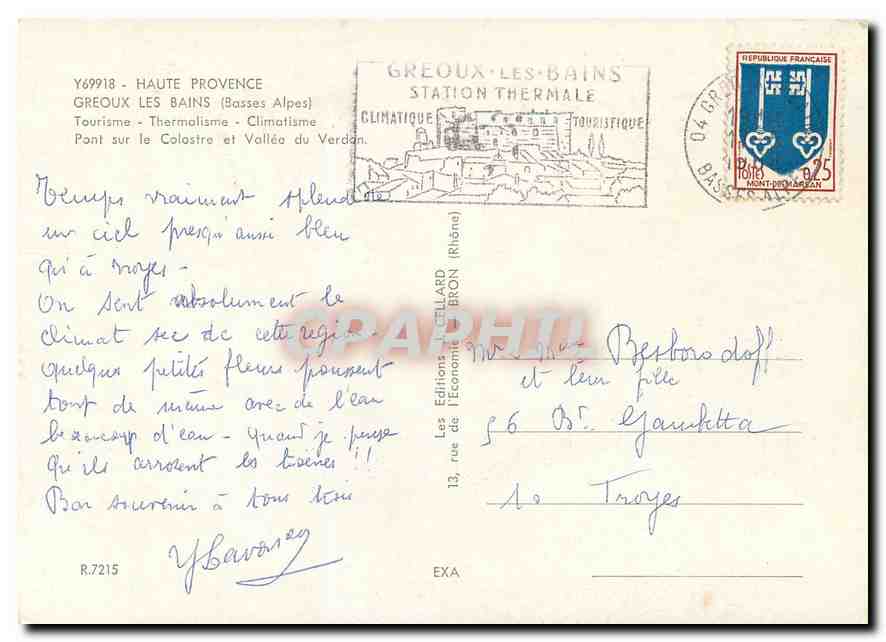 Y69918 - HAUTE PROVENCE
GREOUX LES BAINS (Basses Alpes)
Tourisme - Thermalisme - Climatisme
Pont sur le Colostre et Vallée du Verdon.
GREOUX-LES-BAINS
STATION THERMALE
CLIMATIQUE
TOURISTIQUE
04 GR
BASSES ALPES
REPUBLIQUE FRANÇAISE
POSTES
0,25
MONT-DE-MARSAN
Temps vraiment splendide
un ciel presqu'aussi bleu
qu'à Troyes -
On sent absolument le
climat sec de cette région -
Quelques petites fleurs poussent
tout de même avec de l'eau
beaucoup d'eau - Quand je pense
qu'ils arrosent les !!
Bon souvenir à tous trois
R.7215
Les Editions J. CELLARD
13, rue de l'Economie - BRON (Rhône)
EXA
CPAPHIL
Mr Mme Besborodoff
et leur fille
56 Bd. Gambetta
10 Troyes